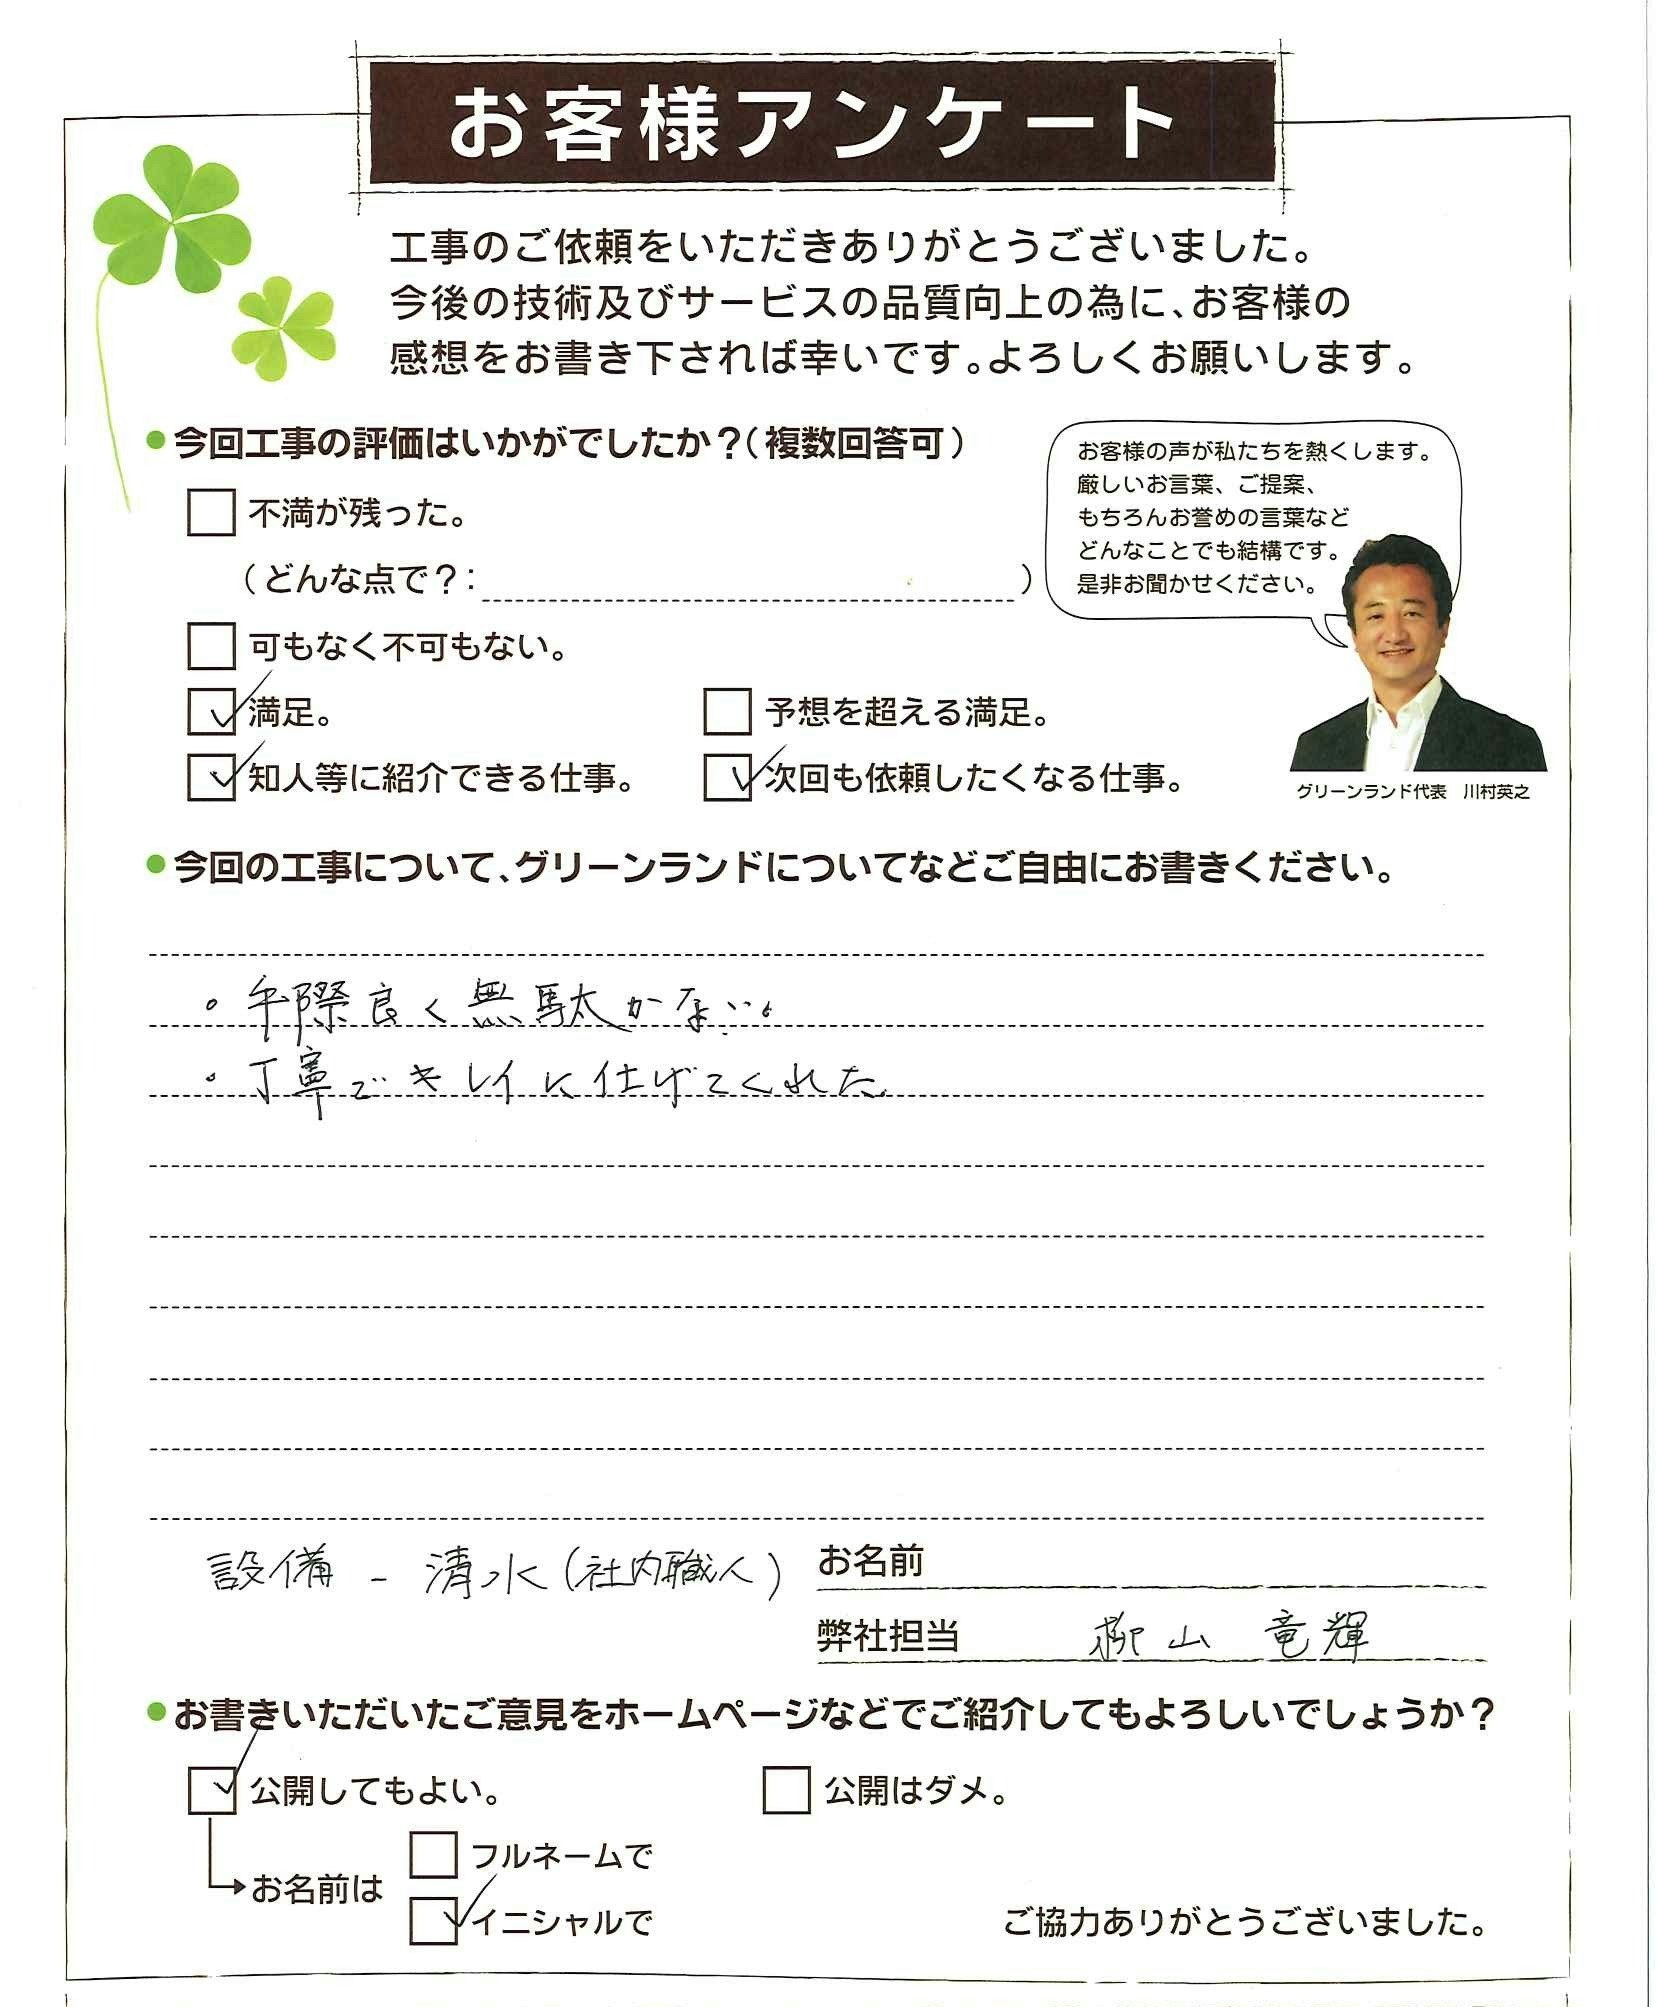 お客様アンケート
工事のご依頼をいただきありがとうございました。
今後の技術及びサービスの品質向上の為に、お客様の
感想をお書き下されば幸いです。よろしくお願いします。
●今回工事の評価はいかがでしたか?(複数回答可)
不満が残った。
(どんな点で?: )
可もなく不可もない。
満足。
予想を超える満足。
知人等に紹介できる仕事。
次回も依頼したくなる仕事。
お客様の声が私たちを熱くします。
厳しいお言葉、ご提案、
もちろんお誉めの言葉など
どんなことでも結構です。
是非お聞かせください。
グリーンランド代表 川村英之
●今回の工事について、グリーンランドについてなどご自由にお書きください。
。手際良く無駄がない。
。丁寧でキレイに仕げてくれた。
設備 - 清水(社内職人)
お名前
弊社担当 柳山 竜輝
●お書きいただいたご意見をホームページなどでご紹介してもよろしいでしょうか?
公開してもよい。
公開はダメ。
お名前は
フルネームで
イニシャルで
ご協力ありがとうございました。